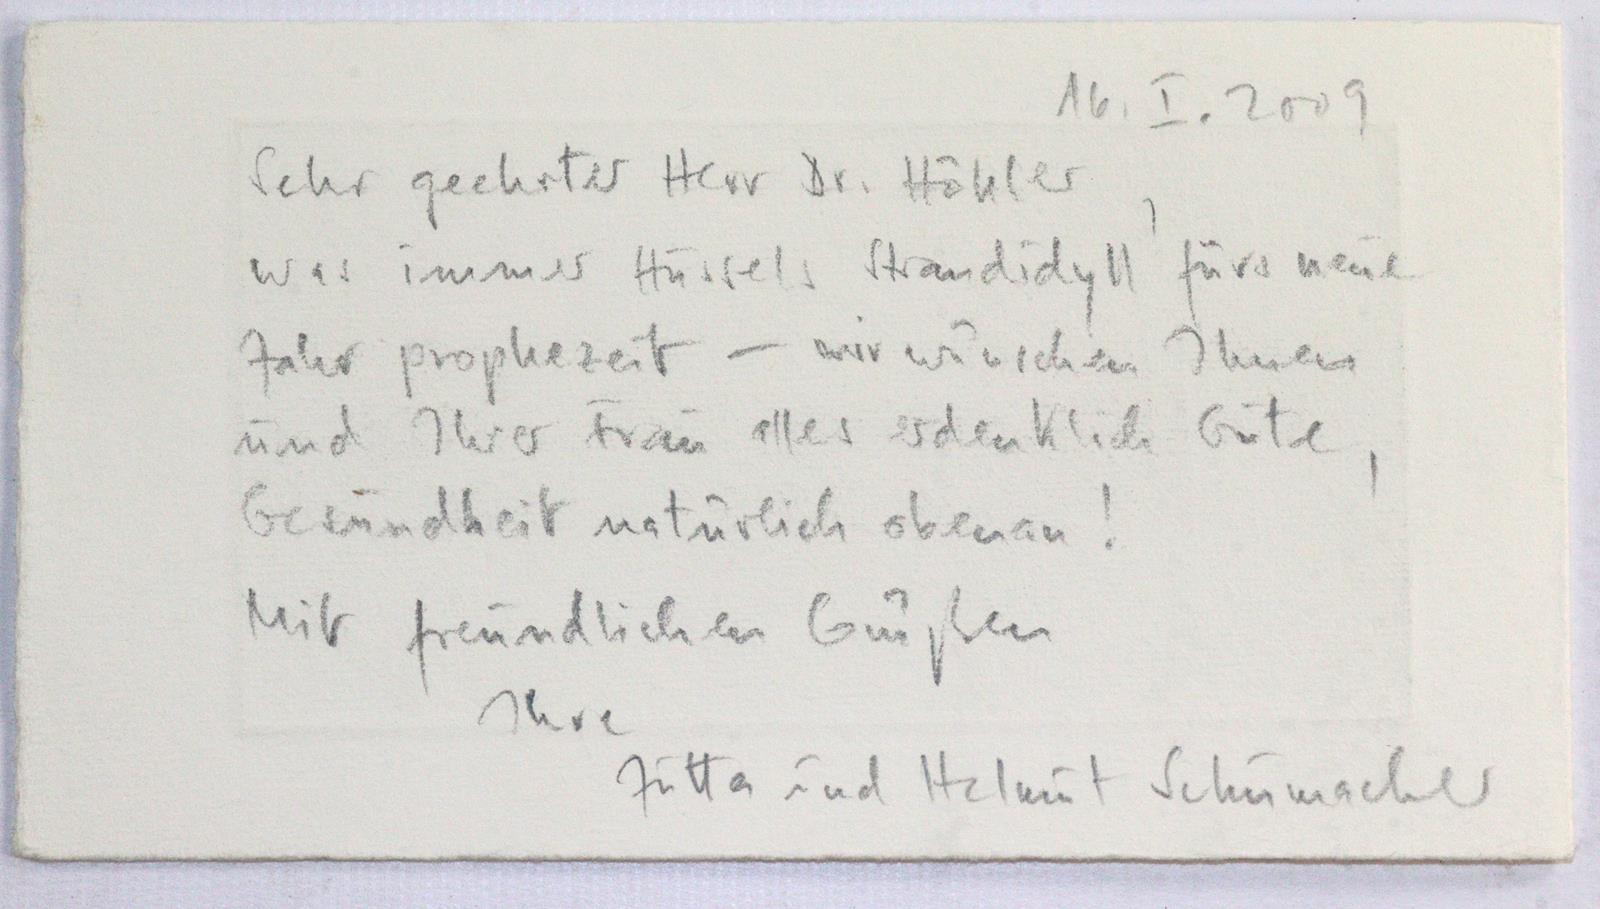 16. I. 2009
Sehr geehrter Herr Dr. Höhler,
was immer Hüssels Strandidyll fürs neue
Jahr prophezeit – wir wünschen Ihnen
und Ihrer Frau alles erdenklich Gute,
Gesundheit natürlich obenan!
Mit freundlichen Grüßen
Ihre
Jutta und Helmut Schumacher